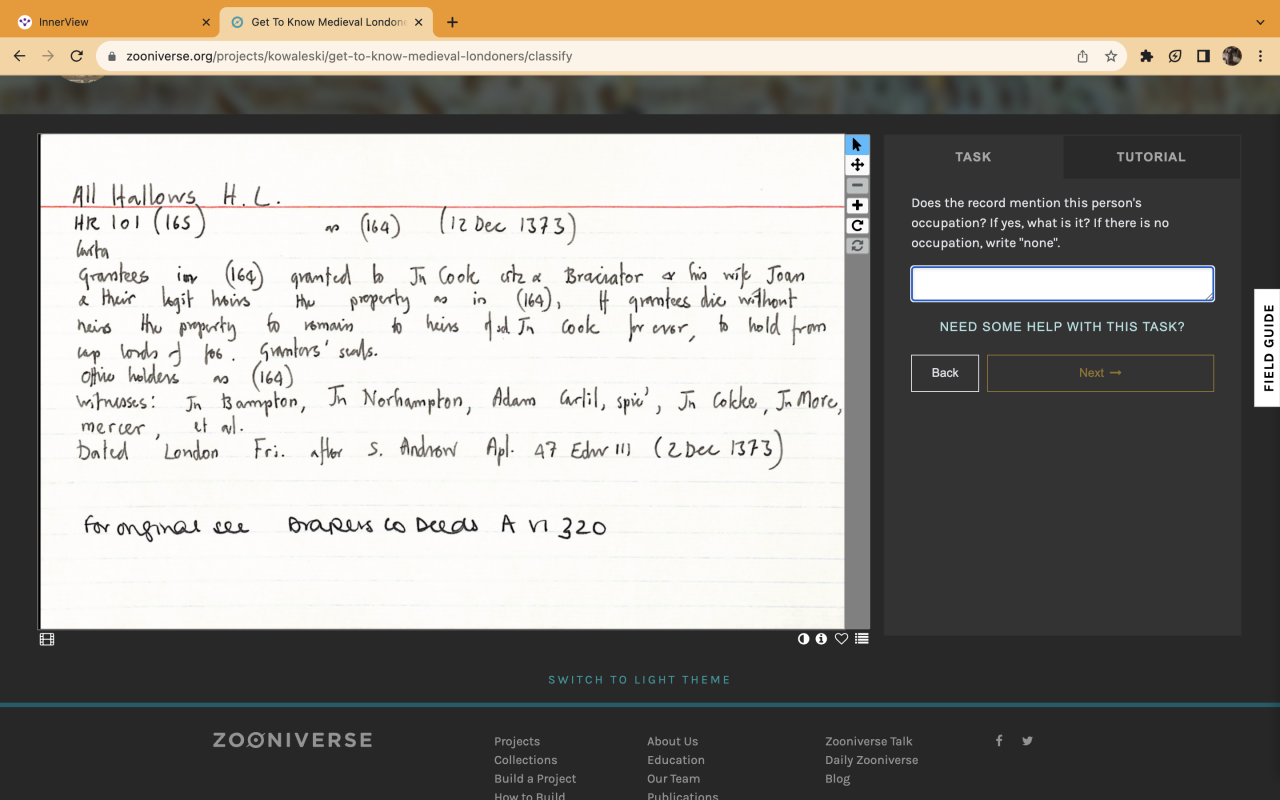 InnerView
Get To Know Medieval Londone
zooniverse.org/projects/kowaleski/get-to-know-medieval-londoners/classify
All Hallows H. L.
HR 101 (165) as (164) (12 Dec 1373)
Carta
Grantees in (164) granted to Jn Cook citz & Braciator & his wife Joan
& their legit heirs the property as in (164), If grantees die without
heirs the property to remain to heirs of sd Jn Cook for ever, to hold from
cap lords of fee. Grantors' seals.
Office holders as (164)
Witnesses: Jn Bampton, Jn Norhampton, Adam Carlil, spic', Jn Cokke, Jn More,
mercer, et al.
Dated London Fri. after S. Andrew Apl. 47 Edw III (2 Dec 1373)
For original see Drapers Co Deeds A VI 320
TASK
TUTORIAL
Does the record mention this person's
occupation? If yes, what is it? If there is no
occupation, write "none".
NEED SOME HELP WITH THIS TASK?
Back
Next →
FIELD GUIDE
SWITCH TO LIGHT THEME
ZOONIVERSE
Projects
Collections
Build a Project
How to Build
About Us
Education
Our Team
Publications
Zooniverse Talk
Daily Zooniverse
Blog